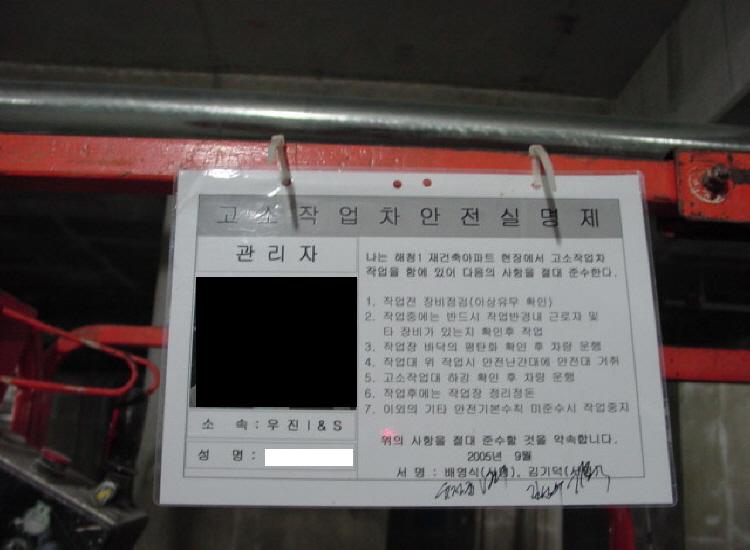 고소작업차안전실명제
관리자
나는 해청1 재건축아파트 현장에서 고소작업차
작업을 함에 있어 다음의 사항을 절대 준수한다.
1. 작업전 장비점검(이상유무 확인)
2. 작업중에는 반드시 작업반경내 근로자 및
타 장비가 있는지 확인후 작업
3. 작업장 바닥의 평탄화 확인 후 차량 운행
4. 작업대 위 작업시 안전난간대에 안전대 거취
5. 고소작업대 하강 확인 후 차량 운행
6. 작업후에는 작업장 정리정돈
7. 이외의 기타 안전기본수칙 미준수시 작업중지
소 속 : 우진I&S
위의 사항을 절대 준수할 것을 약속합니다.
2005년 9월
성 명 :
서 명 : 배영식( ), 김기덕( )